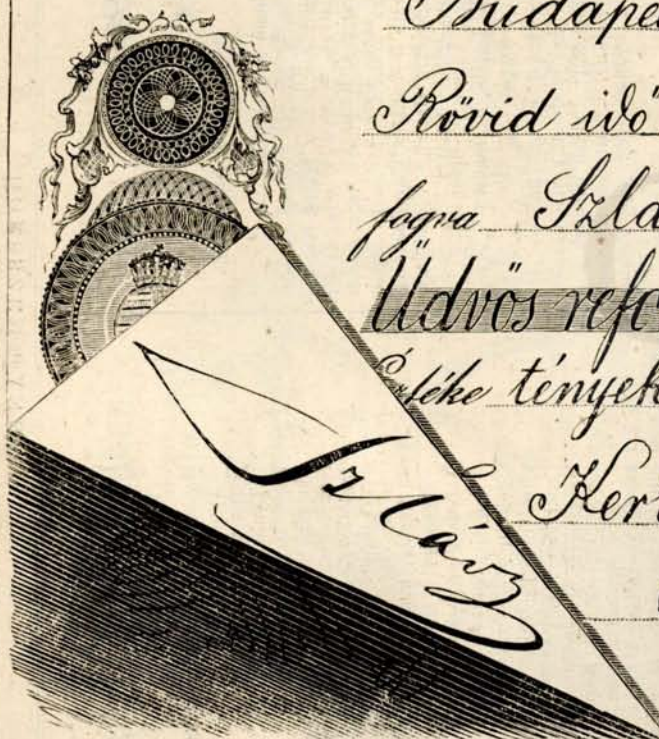 Budape
Rövid idő
fogva Szla
Üdvös refo
téke tények
Ker
Szlávy